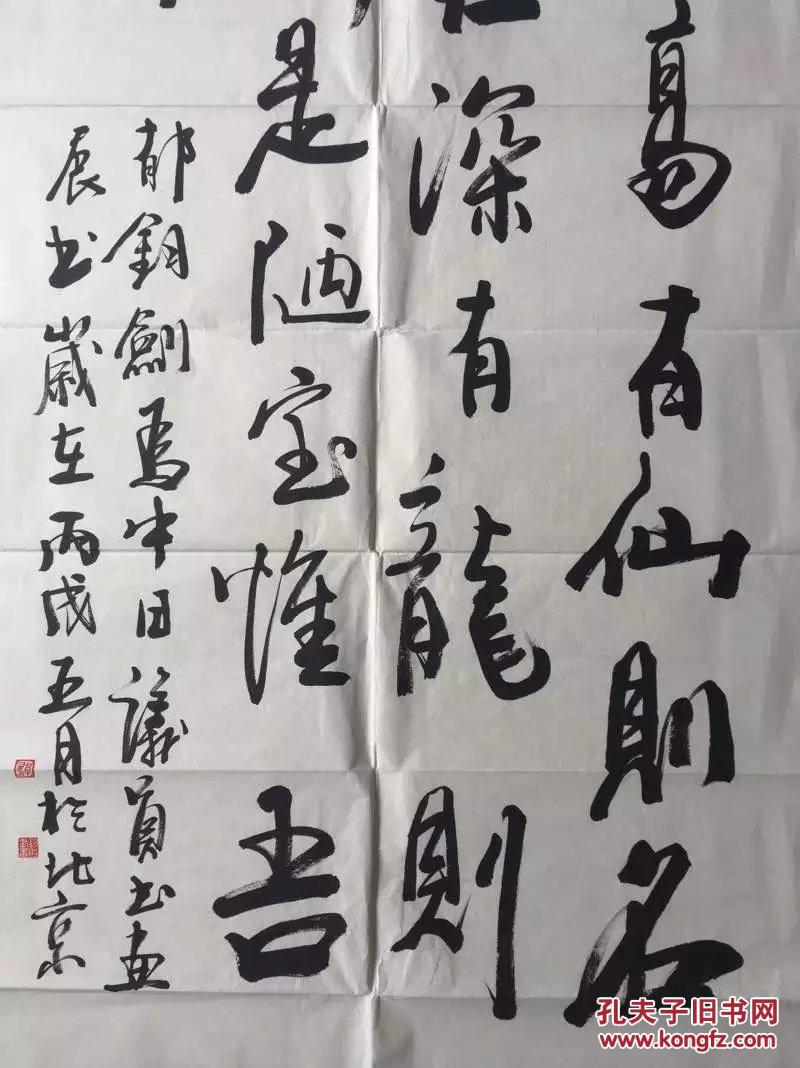 高有仙則名
深有龍則
是陋室惟吾
郁鈞劍為中日議員書畫
展書歲在丙戌五月於北京
孔夫子旧书网
www.kongfz.com